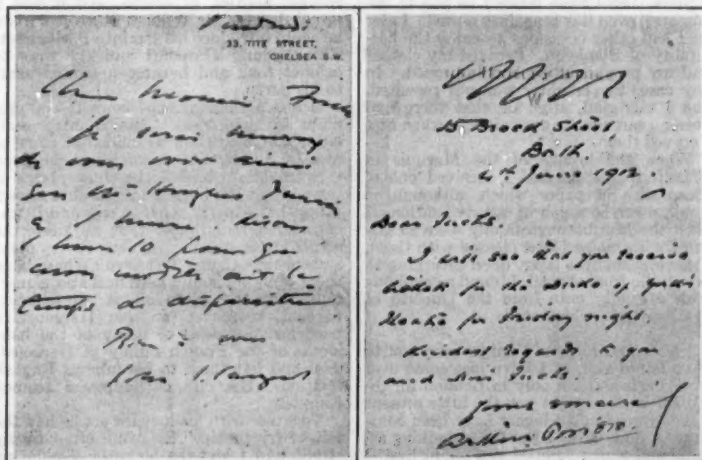 Vendredi.
33, TITE STREET,
CHELSEA S.W.
Cher Monsieur Fuchs
Je serai heureux
de vous voir ainsi
que Mr. Hughes
à 1 heure. disons
1 heure 10 pour que
mon modèle ait le
temps de disparaître
Bien à vous
John S. Sargent
Street,
Bath.
4th June 1912.
Dear Fuchs.
I will see that you receive
tickets for the Duke of York's
Theatre for Tuesday night.
Kindest regards to you
and Fuchs.
Yours sincerely
Arthur Pinero